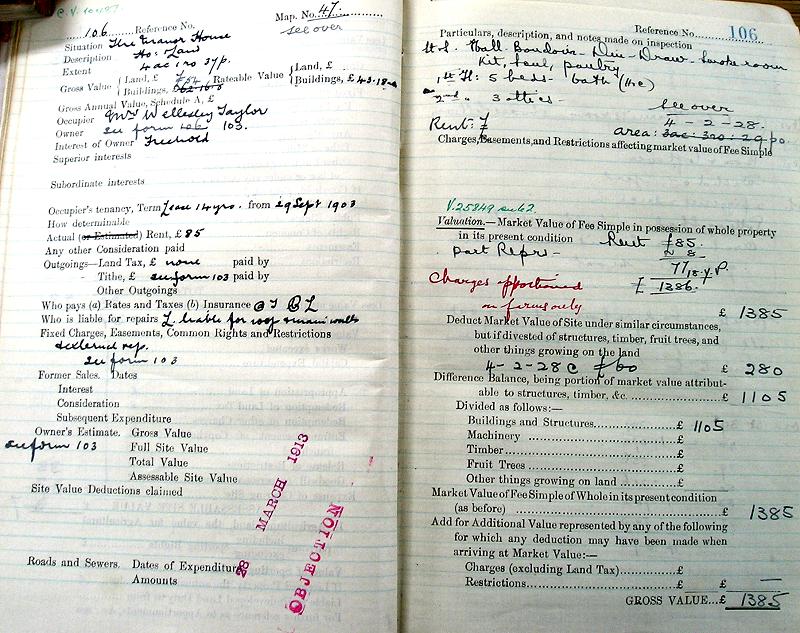 C.V. 10487
106 Reference No.
Map. No. 47
see over
Situation The Manor House
Description Ho: Land
Extent 4 ac 1 ro 37 p.
Gross Value { Land, £ Buildings, £54 } Rateable Value { Land, £ Buildings, £ 43.18
Gross Annual Value, Schedule A, £
Occupier Mrs Wellesley Taylor
Owner see form 106 103.
Interest of Owner Freehold
Superior interests
Subordinate interests
Occupier's tenancy, Term Lease 14 yrs. from 29 Sept 1903
How determinable
Actual (or Estimated) Rent, £ 85
Any other Consideration paid
Outgoings—Land Tax, £ none paid by
Tithe, £ see form 103 paid by
Other Outgoings
Who pays (a) Rates and Taxes (b) Insurance @ T L
Who is liable for repairs L. liable for roof & main walls
Fixed Charges, Easements, Common Rights and Restrictions
& external rep.
see form 103
Former Sales. Dates
Interest
Consideration
Subsequent Expenditure
Owner's Estimate. Gross Value
see form 103 Full Site Value
Total Value
Assessable Site Value
Site Value Deductions claimed
28 MARCH 1913
OBJECTION
Roads and Sewers. Dates of Expenditure
Amounts
Reference No. 106
Particulars, description, and notes made on inspection
Hall. Boudoir - Din - Draw - Smoke room
Kit, scul, pantry
1st Fl: 5 beds - bath (H&C)
2nd " 3 attics
see over
4 - 2 - 28.
Rent: £ area: 3ac: 3ro: 29 po.
Charges, Easements, and Restrictions affecting market value of Fee Simple
V.25849
Valuation.—Market Value of Fee Simple in possession of whole property
in its present condition Rent £85.
part Reprs - 8
77/18 y.P.
£ 1386.
Charges apportioned
on forms only
£ 1385
Deduct Market Value of Site under similar circumstances,
but if divested of structures, timber, fruit trees, and
other things growing on the land
4 - 2 - 28 @ £60 £ 280
Difference Balance, being portion of market value attribut-
able to structures, timber, &c. £ 1105
Divided as follows:—
Buildings and Structures £ 1105
Machinery £
Timber £
Fruit Trees £
Other things growing on land £
Market Value of Fee Simple of Whole in its present condition
(as before) £ 1385
Add for Additional Value represented by any of the following
for which any deduction may have been made when
arriving at Market Value:—
Charges (excluding Land Tax) £
Restrictions £ £ —
GROSS VALUE...£ 1385